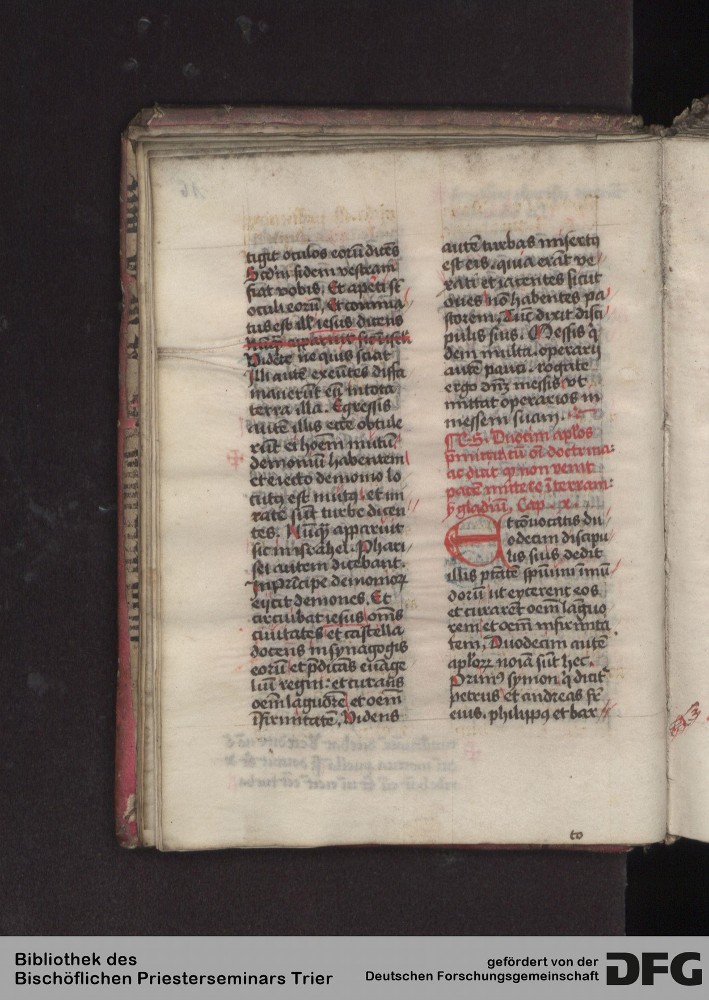 tigit oculos eorū dicēs
Scd'm fidem vestram
fiat vobis. Et aperti sūt
oculi eorū. Et commina
tus est ill' iesus dicens
Videte ne quis sciat
Illi autē exeūtes diffa
mauerūt eū in tota
terra illa. Egressis
autē illis ecce obtule
rūt ei hoēm mutū
demoniū habentem
et eiecto demonio lo
cutꝰ est mutꝰ et mi
rate sūt turbe dicen
tes. Nūqꝫ apparuit
sic in israhel. Phari
sei autem dicebant.
In prīcipe demonioꝝ
eijcit demones. Et
circuibat iesus om̄s
ciuitates et castella
docens in synagogis
eorū et p̄dicās euāge
liū regni: et curans
oem̄ lāguorē et oem̄
īfirmitatē. Videns
autē turbas misertꝰ
est eis. quia erāt ve
xati et iacentes sicut
oues nō habentes pa
storem. Tūc dixit disci
pulis suis. Messis q̄
dem multa. operarij
autē pauci. rogate
ergo dn̄m messis vt
mittat operarios in
messem suam.
Duodecim aplos
ac dicit qꝫ non venit
pacē mittere ī terram:
gladiū. Cap. x.
Et cōuocatis du
odecim discipu
lis suis dedit
illis ptātē spūum īmū
dorū ut eycerent eos
et curarēt oem̄ lāguo
rem et oem̄ infirmita
tem. Duodecim autē
aploꝝ noīa sūt hec.
Primꝰ symon q̄ dicit
petrus et andreas fr̄
eius. philippꝰ et bar
to
Bibliothek des
Bischöflichen Priesterseminars Trier
gefördert von der
Deutschen Forschungsgemeinschaft
DFG